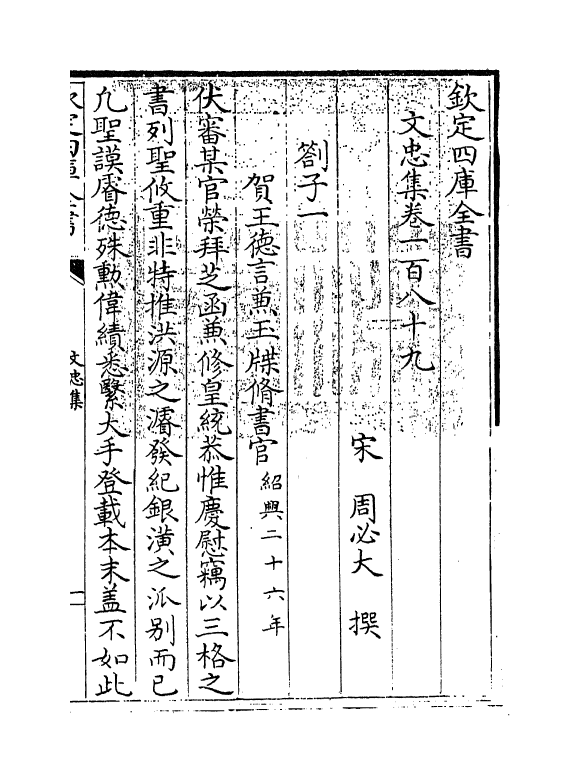 欽定四庫全書
文忠集卷一百八十九
宋　周必大　撰
劄子一
賀王徳言兼玉牒脩書官紹興二十六年
伏審某官榮拜芝函兼修皇統恭惟慶慰竊以三格之
書列聖攸重非特推洪源之濬發紀銀潢之派别而已
凢聖謨睿徳殊勲偉績悉繫大手登載本末盖不如此
欽定四庫全書
文忠集
一